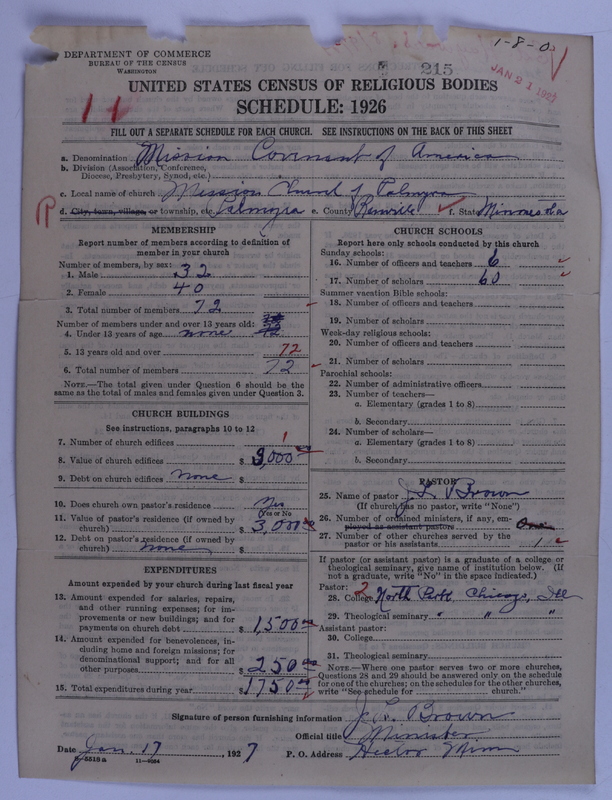 1-8-0
DEPARTMENT OF COMMERCE
BUREAU OF THE CENSUS
WASHINGTON
215
JAN 21 192
UNITED STATES CENSUS OF RELIGIOUS BODIES
SCHEDULE: 1926
FILL OUT A SEPARATE SCHEDULE FOR EACH CHURCH. SEE INSTRUCTIONS ON THE BACK OF THIS SHEET
a. Denomination Mission Covenant of America
b. Division (Association, Conference,
Diocese, Presbytery, Synod, etc.)
c. Local name of church Mission Church of Palmyra
d. City, town, village, or township, etc. Palmyra e. County Renville f. State Minnesota
MEMBERSHIP
Report number of members according to definition of
member in your church
Number of members, by sex:
1. Male 32
2. Female 40
3. Total number of members 72
Number of members under and over 13 years old:
4. Under 13 years of age none
5. 13 years old and over 72
6. Total number of members 72
NOTE.—The total given under Question 6 should be the
same as the total of males and females given under Question 3.
CHURCH BUILDINGS
See instructions, paragraphs 10 to 12
7. Number of church edifices 1
8. Value of church edifices $ 9,000
9. Debt on church edifices none $
10. Does church own pastor's residence Yes
(Yes or No)
11. Value of pastor's residence (if owned by
church) $ 3,000
12. Debt on pastor's residence (if owned by
church) none $
EXPENDITURES
Amount expended by your church during last fiscal year
13. Amount expended for salaries, repairs,
and other running expenses; for im-
provements or new buildings; and for
payments on church debt $ 1,500
14. Amount expended for benevolences, in-
cluding home and foreign missions; for
denominational support; and for all
other purposes $ 250
15. Total expenditures during year $ 1750
CHURCH SCHOOLS
Report here only schools conducted by this church
Sunday schools:
16. Number of officers and teachers 6
17. Number of scholars 60
Summer vacation Bible schools:
18. Number of officers and teachers
19. Number of scholars
Week-day religious schools:
20. Number of officers and teachers
21. Number of scholars
Parochial schools:
22. Number of administrative officers
23. Number of teachers—
a. Elementary (grades 1 to 8)
b. Secondary
24. Number of scholars—
a. Elementary (grades 1 to 8)
b. Secondary
PASTOR
25. Name of pastor J. L. Brown
(If church has no pastor, write "None")
26. Number of ordained ministers, if any, em-
ployed as assistant pastors One
27. Number of other churches served by the
pastor or his assistants 1
If pastor (or assistant pastor) is a graduate of a college or
theological seminary, give name of institution below. (If
not a graduate, write "No" in the space indicated.)
Pastor: 2
28. College North Park Chicago, Ill
29. Theological seminary " " "
Assistant pastor:
30. College
31. Theological seminary
NOTE.—Where one pastor serves two or more churches,
Questions 28 and 29 should be answered only on the schedule
for one of the churches; on the schedules for the other churches,
write "See schedule for church."
Signature of person furnishing information J. L. Brown
Official title Minister
Date Jan. 17 , 1927 P. O. Address Hector Minn
8-5518a 11-9864